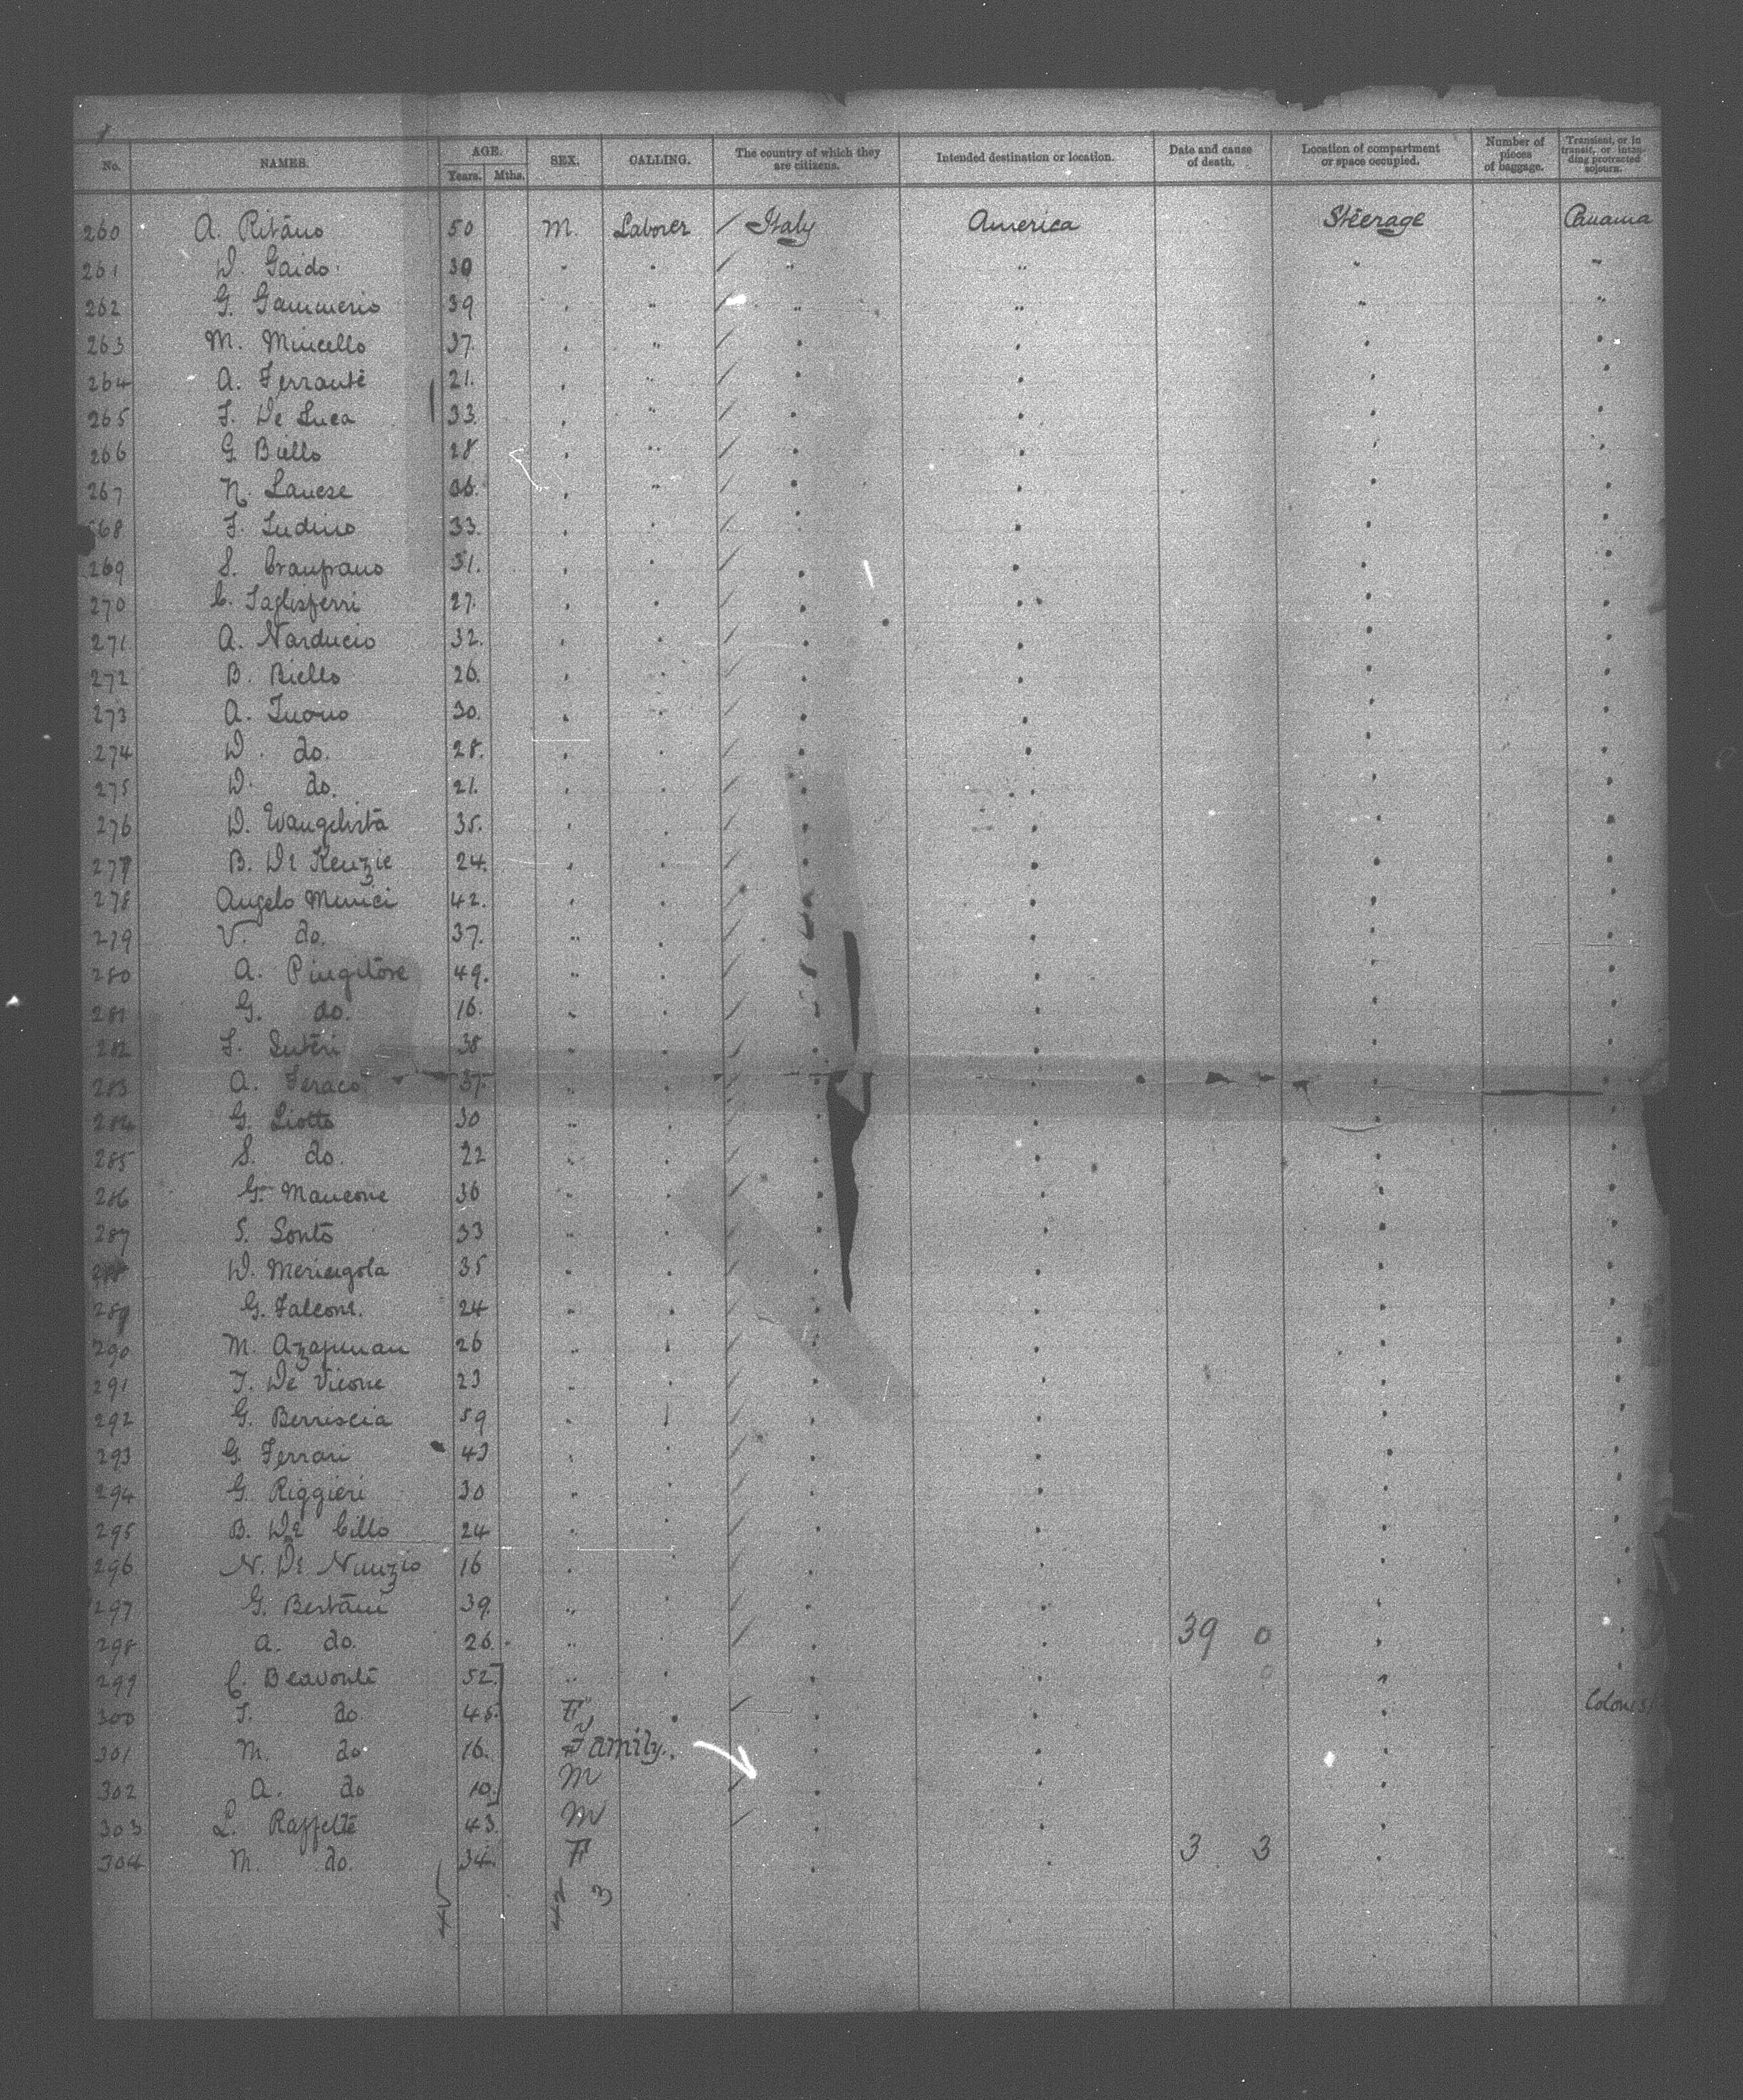 No. NAMES. AGE. Years. Mths. SEX. CALLING. The country of which they are citizens. Intended destination or location. Date and cause of death. Location of compartment or space occupied. Number of pieces of baggage. Transient, or in transit, or intending protracted sojourn.
260 A. Ritano 50 M. Laborer / Italy America Steerage Panama
261 D. Gaido 30 " " / " " " "
262 G. Gammerio 39 " " / " " " "
263 M. Mincello 37. " " / " " " "
264 A. Ferrante 21. " " / " " " "
265 F. De Luca 33. " " / " " " "
266 G. Biello 28 " " / " " " "
267 N. Lanese 36. " " / " " " "
268 F. Ludino 33. " " / " " " "
269 S. 31. " " / " " " "
270 C. Taglisferri 27. " " / " " " "
271 A. Narducio 32. " " / " " " "
272 B. Biello 26. " " / " " " "
273 A. Tuono 30. " " / " " " "
274 D. do. 28. " " / " " " "
275 D. do. 21. " " / " " " "
276 D. Evangelista 35. " " / " " " "
277 B. De Renzie 24. " " / " " " "
278 Angelo Minici 42. " " / " " " "
279 V. do. 37. " " / " " " "
280 A. Pingitore 49. " " / " " " "
281 G. do. 16. " " / " " " "
282 F. 38 " " / " " " "
283 A. Feraco 37. " " / " " " "
284 G. Liotto 30 " " / " " " "
285 S. do. 22 " " / " " " "
286 G. Mancone 36 " " / " " " "
287 S. Sonto 33 " " / " " " "
288 D. Meringola 35 " " / " " " "
289 G. Falcone. 24 " " / " " " "
290 M. 26 " " / " " " "
291 F. De Vicone 23 " " / " " " "
292 G. Berriscia 59 " " / " " " "
293 G. Ferrari 43 " " / " " " "
294 G. Riggieri 30 " " / " " " "
295 B. De Cillo 24 " " / " " " "
296 N. De Nunzio 16 " " / " " " "
297 G. Bertani 39. " " / " " " "
298 A. do. 26. " " / " " 39 0 " "
299 C. Beavonte 52 " " " " 0 " "
300 F. do. 45. F " / " " " Colonist
301 M. do. 16. Family. " " "
302 A. do 10. M / " " "
303 L. Raffelte 43. M / " " "
304 M. do. 34. F " " 3 3 " "
45 42 3